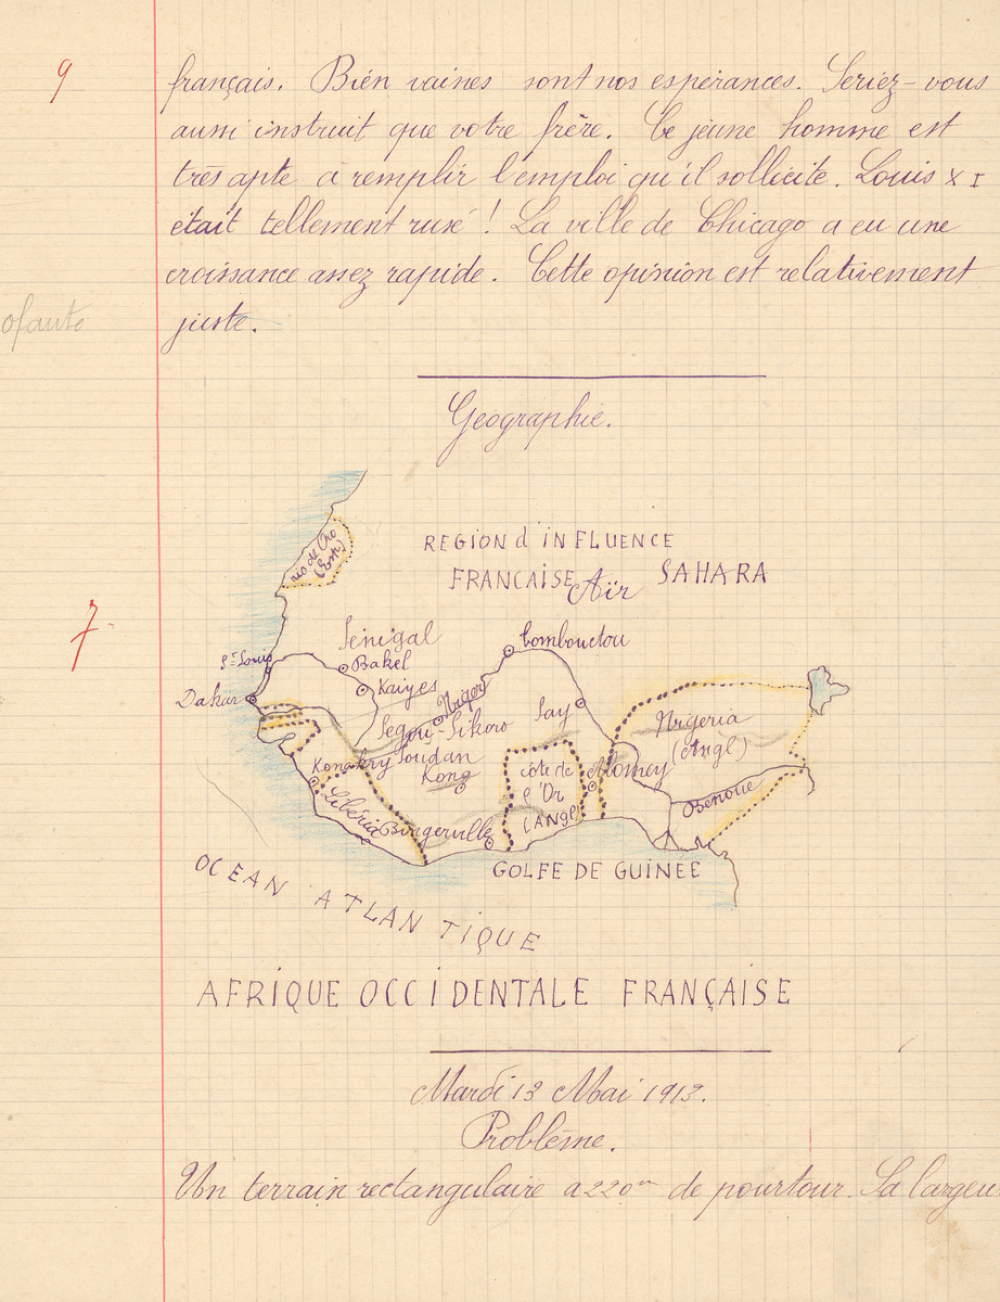 9
français. Bien vaines sont nos espérances. Seriez-vous
aussi instruit que votre frère. Ce jeune homme est
très apte à remplir l'emploi qu'il sollicite. Louis XI
était tellement rusé ! La ville de Chicago a eu une
croissance assez rapide. Cette opinion est relativement
juste.
0faute
Géographie.
7
Rio de Oro
(Esp)
REGION d'INFLUENCE
FRANCAISE
Aïr
SAHARA
Sénégal
Bakel
Kaiyes
St Louis
Dakar
Tombouctou
Niger
Segou-Sikoro
Say
Nigeria
(Angl)
Konakry
Soudan
Kong
Côte de
l'Or
(ANgl)
Abomey
Benoue
Libéria
Bingerville
GOLFE DE GUINEE
OCEAN ATLANTIQUE
AFRIQUE OCCIDENTALE FRANÇAISE
Mardi 13 Mai 1913.
Problème.
Un terrain rectangulaire a 220m de pourtour. Sa largeu